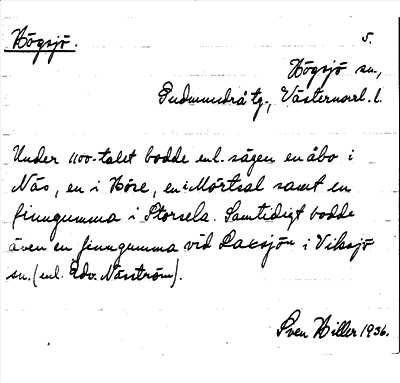 Högsjö. 5.
Högsjö sn.,
Gudmundrå tg., Västernorrl. l.
Under 1100-talet bodde enl. sägen en åbo i
Näs, en i Höre, en i Mörtsal samt en
finngumma i Storsela. Samtidigt bodde
även en finngumma vid Laxsjön i Viksjö
sn. (enl. Edv. Näsström).
Sven Hiller 1936.